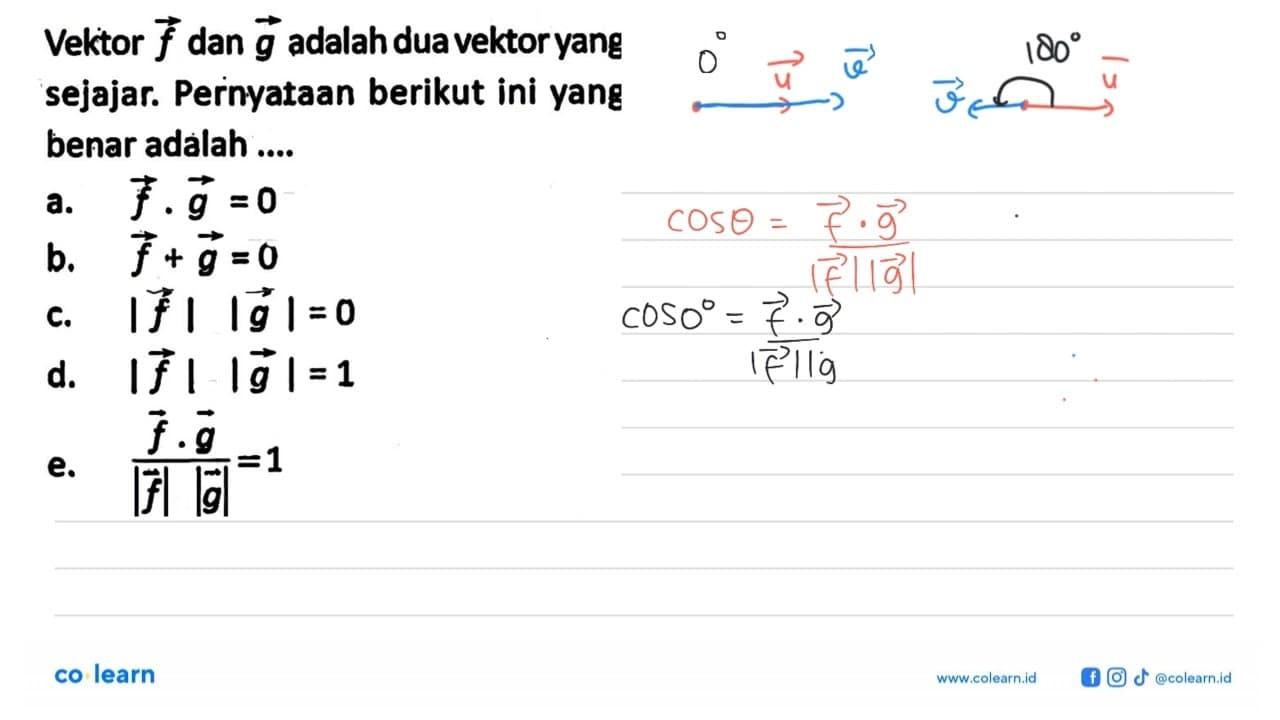 Vektor f⃗ dan g⃗ adalah dua vektor yang
sejajar. Pernyataan berikut ini yang
benar adalah ....
a. f⃗ . g⃗ = 0
b. f⃗ + g⃗ = 0
c. |f⃗| |g⃗| = 0
d. |f⃗| |g⃗| = 1
e. f⃗ . g⃗ / |f⃗| |g⃗| = 1
0° u⃗ v⃗
180° v⃗ u
cosθ = f⃗ . g⃗ / |f⃗||g⃗|
cos0° = f⃗ . g⃗ / |f⃗||g
co learn
www.colearn.id
@colearn.id